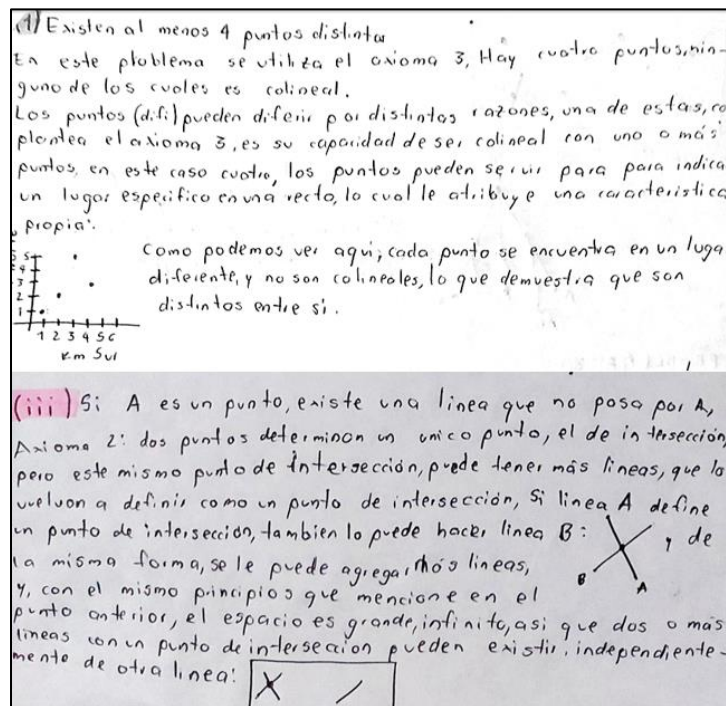 (1) Existen al menos 4 puntos distintos
En este problema se utiliza el axioma 3, Hay cuatro puntos, nin-
guno de los cuales es colineal.
Los puntos (difi) pueden diferir por distintas razones, una de estas, co
plantea el axioma 3, es su capacidad de ser colineal con uno o más
puntos, en este caso cuatro, los puntos pueden servir para para indica
un lugar especifico en una recta, lo cual le atribuye una caracteristica
propia:
Como podemos ver aqui, cada punto se encuentra en un luga
diferente, y no son colineales, lo que demuestra que son
distintos entre si.
5
4
3
2
1
1 2 3 4 5 6
Km Sur
(iii) Si A es un punto, existe una linea que no pasa por A,
Axioma 2: dos puntos determinan un unico punto, el de intersección,
pero este mismo punto de intersección, puede tener más lineas, que lo
vuelvan a definir como un punto de intersección, Si linea A define
un punto de intersección, tambien lo puede hacer linea B: y de
B A
la misma forma, se le puede agregar más lineas,
y, con el mismo principios que mencione en el
punto anterior, el espacio es grande, infinito, asi que dos o más
lineas con un punto de interseccion pueden existir, independiente-
mente de otra linea: